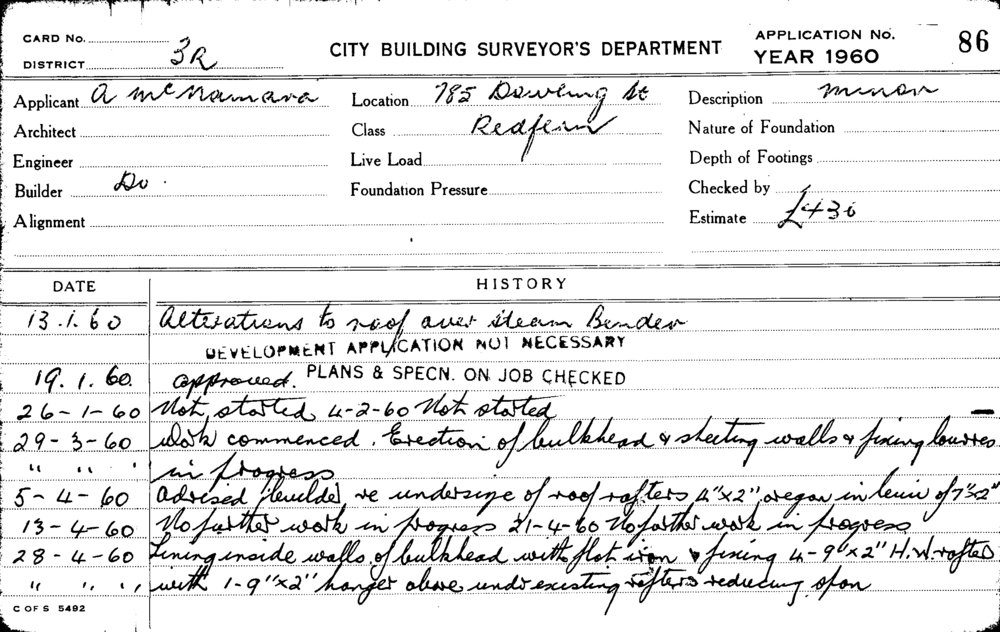 CARD No.
DISTRICT 3R
CITY BUILDING SURVEYOR'S DEPARTMENT
APPLICATION No. 86
YEAR 1960
Applicant A McNamara
Location 785 Dowling St
Description minor
Architect
Class Redfern
Nature of Foundation
Engineer
Live Load
Depth of Footings
Builder Do.
Foundation Pressure
Checked by
Alignment
Estimate £430
DATE HISTORY
13.1.60 Alterations to roof over steam Bender
DEVELOPMENT APPLICATION NOT NECESSARY
19.1.60. approved. PLANS & SPECN. ON JOB CHECKED
26-1-60 Not started 4-2-60 Not started
29-3-60 Work commenced. Erection of bulkhead & sheeting walls & fixing louvres
" " " in progress
5-4-60 Advised builder re undersize of roof rafters 4"x2" oregon in leiu of 7"x2"
13-4-60 No further work in progress 21-4-60 No further work in progress
28-4-60 Lining inside walls of bulkhead with flat iron & fixing 4-9"x2" H.W. rafters
" " " with 1-9"x2" hanger above under existing rafters reducing span
C OF S 5492